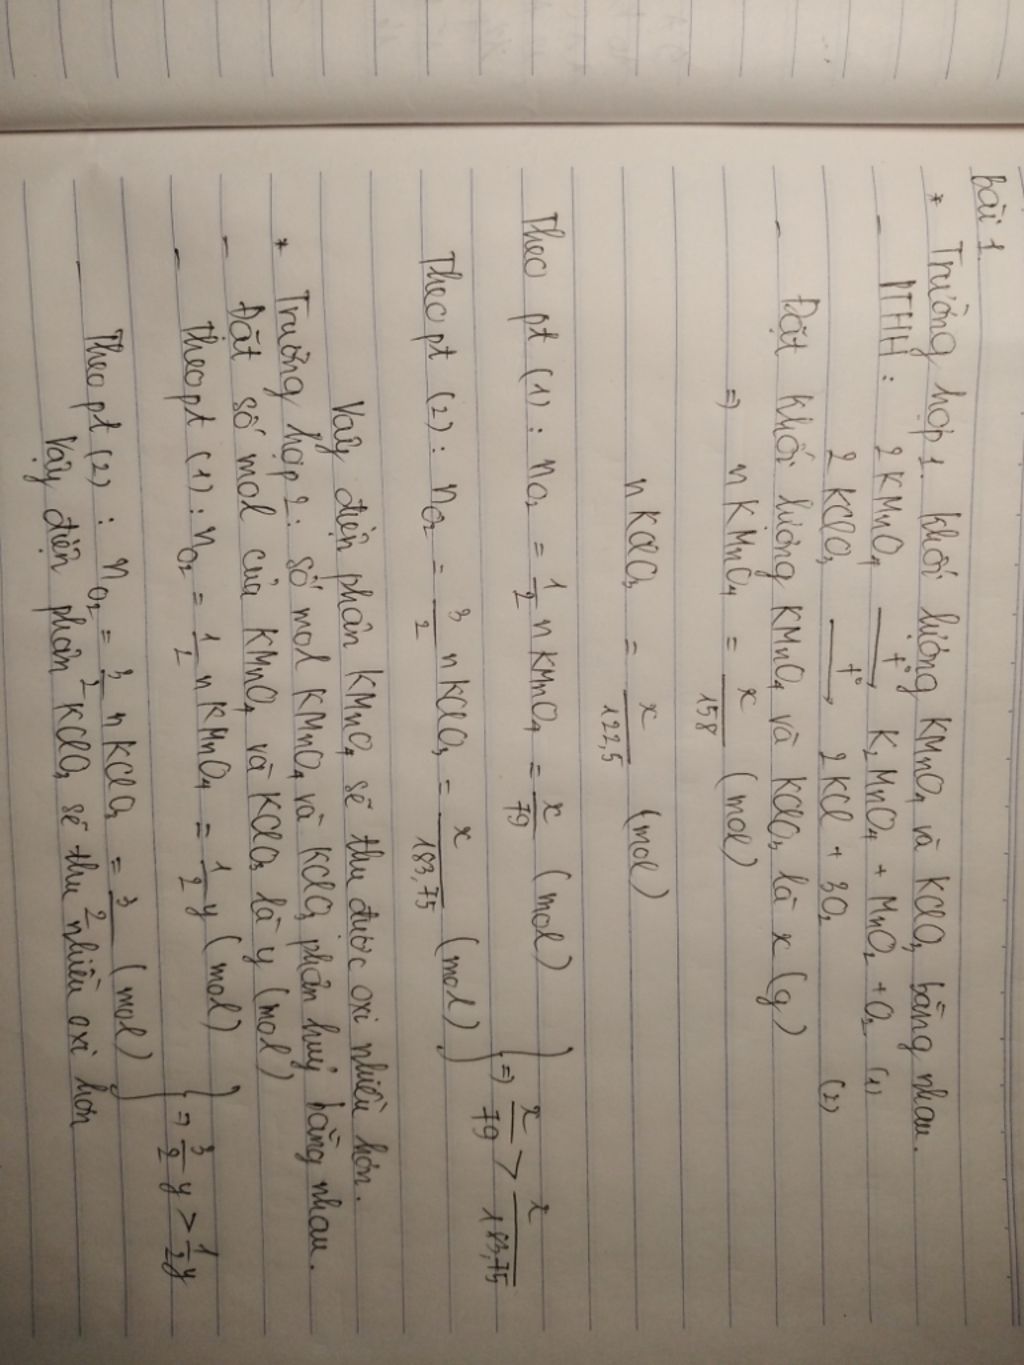 bài 1.
* Trường hợp 1. khối lượng KMnO₄ và KClO₃ bằng nhau.
- PTHH: 2 KMnO₄ —t°→ K₂MnO₄ + MnO₂ + O₂ (1)
2 KClO₃ —t°→ 2 KCl + 3O₂ (2)
- Đặt khối lượng KMnO₄ và KClO₃ là x (g)
=> n KMnO₄ = x/158 (mol)
n KClO₃ = x/122,5 (mol)
Theo pt (1): nO₂ = 1/2 n KMnO₄ = x/79 (mol)
Theo pt (2): nO₂ = 3/2 n KClO₃ = x/183,75 (mol) } => x/79 > x/183,75
Vậy điện phân KMnO₄ sẽ thu được oxi nhiều hơn.
* Trường hợp 2: số mol KMnO₄ và KClO₃ phân huỷ bằng nhau.
- Đặt số mol của KMnO₄ và KClO₃ là y (mol)
- Theo pt (1): nO₂ = 1/2 n KMnO₄ = 1/2 y (mol)
- Theo pt (2): nO₂ = 3/2 n KClO₃ = 3/2 (mol) } => 3/2 y > 1/2 y
Vậy điện phân KClO₃ sẽ thu nhiều oxi hơn